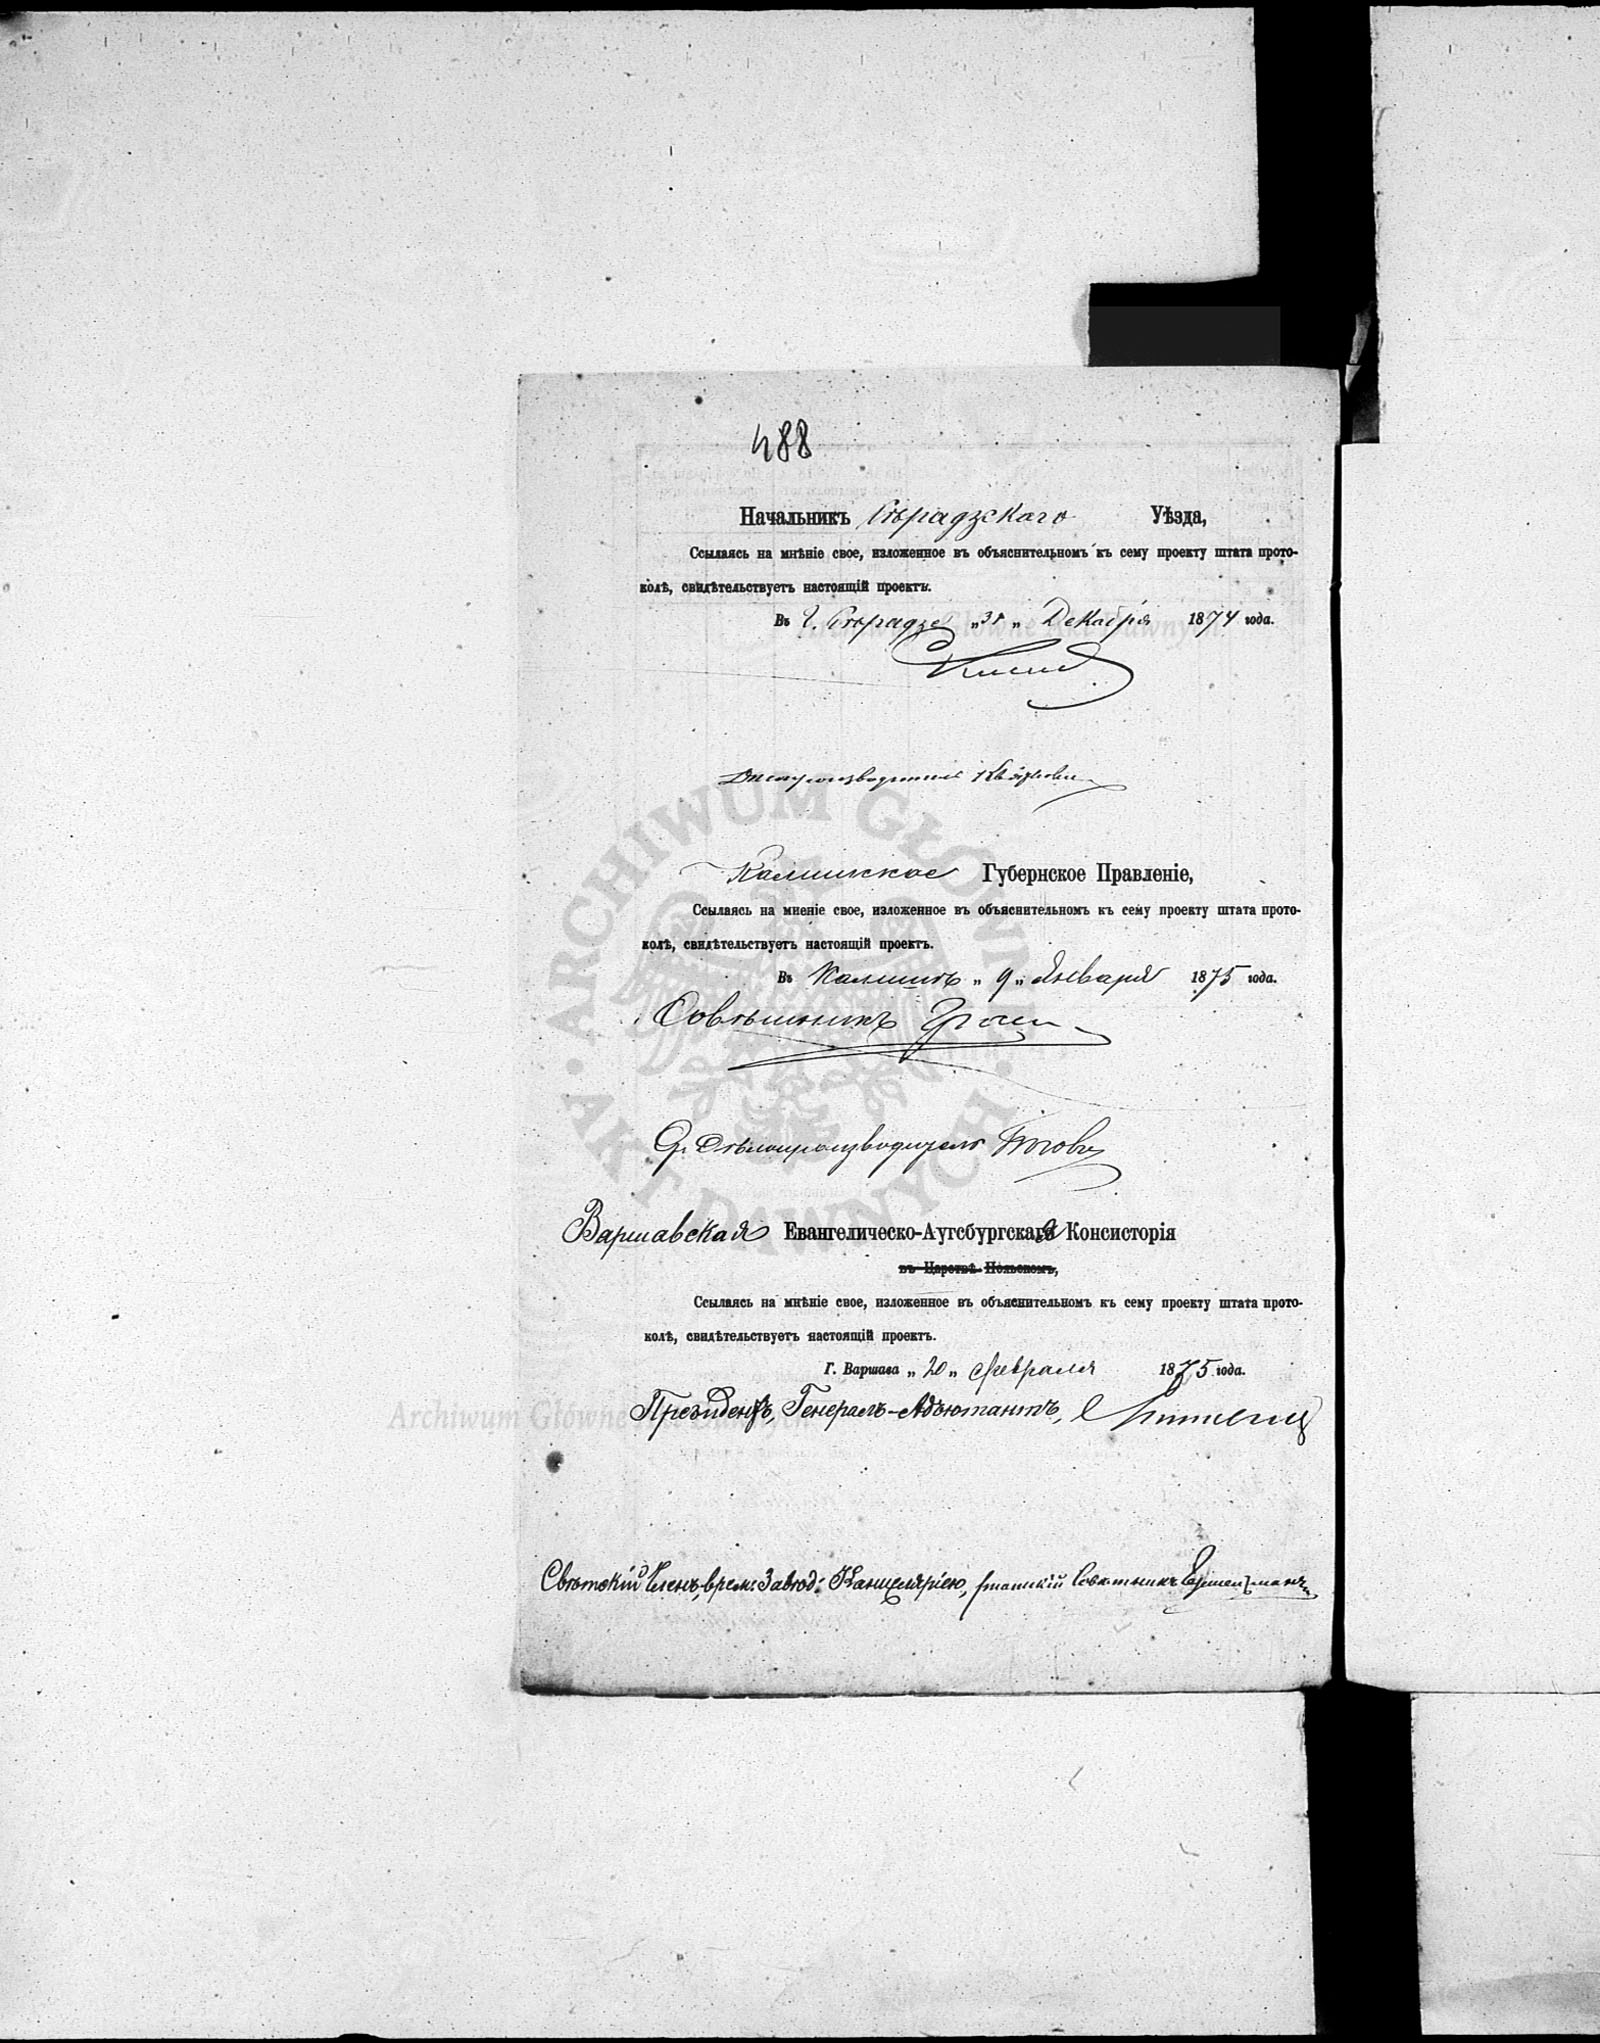 488
Начальникъ Сѣрадзскаго Уѣзда,
Ссылаясь на мнѣніе свое, изложенное въ объяснительномъ къ сему проекту штата прото-
колѣ, свидѣтельствуетъ настоящій проектъ.
Въ г. Сѣрадзе „31„ Декабря 1874 года.
Дѣлопроизводитель
Калишское Губернское Правленіе,
Ссылаясь на мненіе свое, изложенное въ объяснительномъ къ сему проекту штата прото-
колѣ, свидѣтельствуетъ настоящій проектъ.
Въ Калишѣ „9„ Января 1875 года.
Совѣтникъ
Дѣлопроизводитель
Варшавская Евангелическо-Аугсбургская Консисторія
въ Царствѣ Польскомъ,
Ссылаясь на мнѣніе свое, изложенное въ объяснительномъ къ сему проекту штата прото-
колѣ, свидѣтельствуетъ настоящій проектъ.
Г. Варшава „20„ Февраля 1875 года.
Президентъ, Генералъ-Адъютантъ,
Свѣтскій Членъ, врем: Завѣд: Канцеляріею, Статскій Совѣтникъ
ARCHIWUM GŁÓWNE AKT DAWNYCH
Archiwum Główne Akt Dawnych